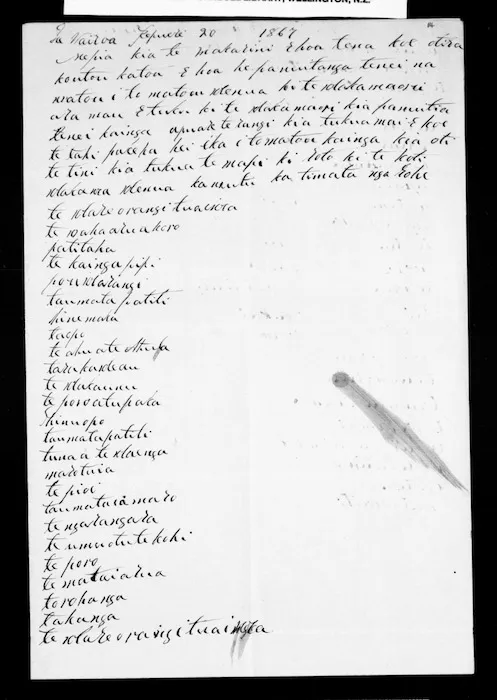 WELLINGTON, N.Z.
Te Wairoa Tepuere 20 1867
Nepia kia te makarini E hoa tena koe otira
koutou katoa E hoa he panuitanga tenei na
matou i to matou whenua ki te whakamaori
ara mau E tuku ki te whakamaori kia panuitia
tenei kainga apiarterangi kia tukua mai E koe
te tahi pacepa hei ika i to matou kainga kia oti
te tini kia tukua te mapi ki roto ki te koti
whakawa whenua ka mutu ka timata nga Rohe
te whare o rangituaiwa
te wakaaruakoro
patitaha
te kainga pipi
pouwharangi
taumata patiti
hinemaka
taepo
te ahu ate Atua
tarakawheau
te whakaumu
te poroatupaka
hinuopo
taumatapatiti
tuna a te whaenga
maretuia
te pioi
taumatuiamaro
te ngarangara
te umuotutekohi
te poro
te mataiarua
torohanga
takanga
te whare o rangituaiwa